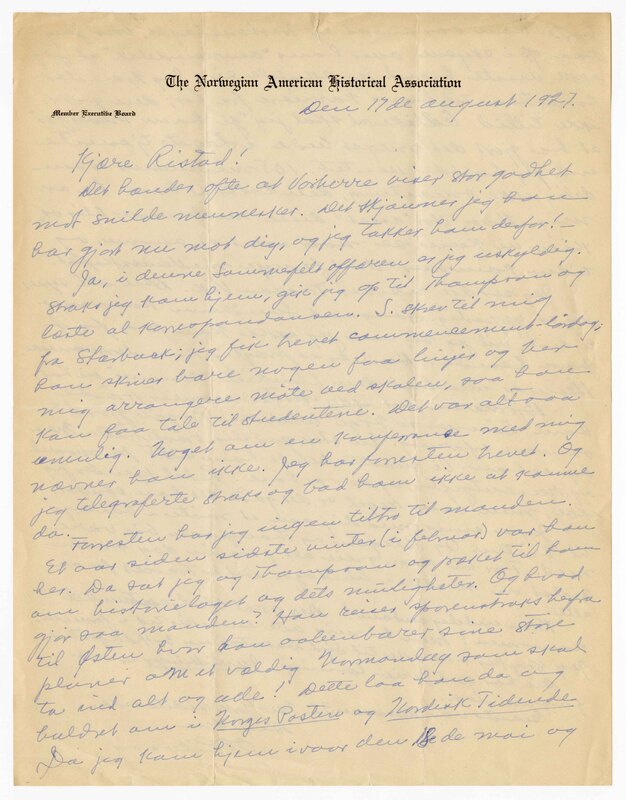 The Norwegian American Historical Association
Member Executive Board
Den 17de august 1927.
Kjære Ristad!
Det hænder ofte at Vorherre viser stor godhet
mot snilde mennesker. Det skjønner jeg han
har gjort nu mot dig, og jeg takker ham derfor! —
Ja, i denne Sommerfelt affæren er jeg uskyldig.
Straks jeg kom hjem, gik jeg op til Thompson og
læste al korrespondansen. S. skrev til mig
fra Starbuck; jeg fik brevet commencement-lørdag;
han skriver bare nogen faa linjer og ber
mig arrangere møte ved skolen, saa han
kan faa tale til studentene. Det var altsaa
umulig. Noget om en konferanse med mig
nævner han ikke. Jeg har forresten brevet. Og
jeg telegraferte straks og bad ham ikke at komme
da. Forresten har jeg ingen tiltro til manden.
Et aar siden sidste vinter (i februar) var han
her. Da sat jeg og Thompson og præket til ham
om historielaget og dets muligheter. Og hvad
gjør saa manden? Han reiser sporenstreks herfra
til Østen hvor han aabenbarer sine store
planer om et vældig Normandag som skal
ta ind alt og alle! Dette laa han da og
buldret om i Norges Posten og Nordisk Tidende
Da jeg kom hjem ivaar den 18de mai og